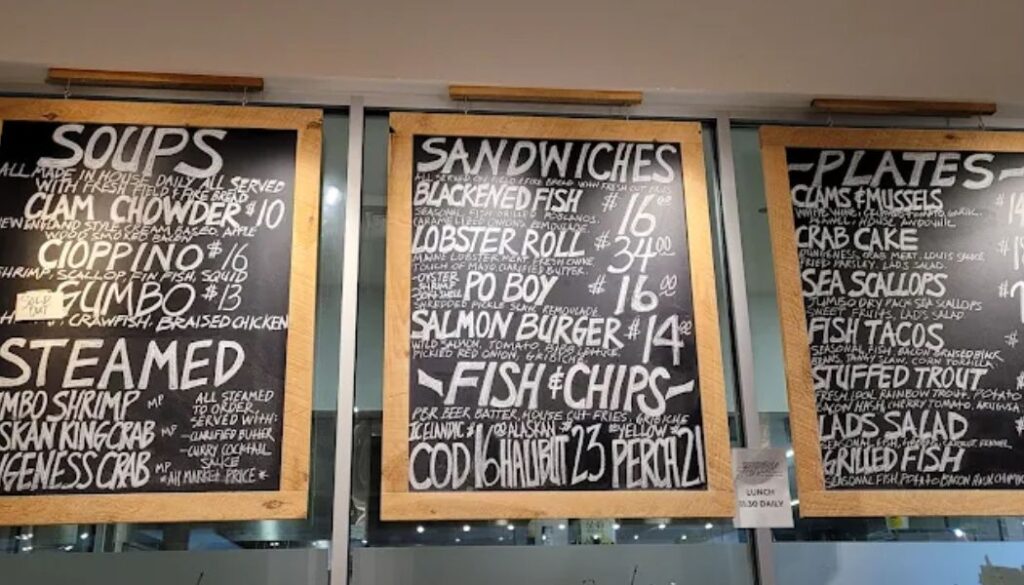 SOUPS
ALL MADE IN HOUSE DAILY ALL SERVED
WITH FRESH FIELD & FIRE BREAD
CLAM CHOWDER $10
NEW ENGLAND STYLE, CREAM BASED, APPLE
WOOD SMOKED BACON
CIOPPINO $16
SHRIMP, SCALLOP, FIN FISH, SQUID
SOLD OUT
GUMBO $13
CRAWFISH, BRAISED CHICKEN
STEAMED
MBO SHRIMP MP
SKAN KING CRAB MP
NGENESS CRAB MP
ALL STEAMED
TO ORDER
SERVED WITH:
-CLARIFIED BUTTER
-CURRY COCKTAIL
SAUCE
*ALL MARKET PRICE*
SANDWICHES
ALL SERVED ON FIELD & FIRE BREAD WITH FRESH CUT FRIES
BLACKENED FISH $16.00
SEASONAL FISH GRILLED POBLANOS,
CARAMELIZED ONIONS, REMOULADE
LOBSTER ROLL $34.00
MAINE LOBSTER MEAT FRESH CHIVE
TOUCH OF MAYO CLARIFIED BUTTER
OYSTER
SHRIMP
PO BOY $16.00
SHREDDED PICKLE SLAW REMOULADE
SALMON BURGER $14.00
WILD SALMON, TOMATO, BIBB LETTUCE,
PICKLED RED ONION, GRIBICHE
~FISH & CHIPS~
PBR BEER BATTER, HOUSE CUT FRIES, GRIBICHE
ICELANDIC COD $16
ALASKAN HALIBUT 23
YELLOW PERCH 21
-PLATES-
CLAMS & MUSSELS
WHITE WINE, TOMATO, GARLIC,
CRAB CAKE
DUNGENESS CRAB MEAT, LOUIS SAUCE
FRIED PARSLEY, LADS SALAD.
SEA SCALLOPS
JUMBO DRY PACK SEA SCALLOPS
SWEET FRUITS, LADS SALAD.
FISH TACOS
SEASONAL FISH, BACON BRAISED BLACK
BEANS, TANGY SLAW, CORN TORTILLA
STUFFED TROUT
FRESH IDOL RAINBOW TROUT, POTATO
BACON HASH, CHERRY TOMATO, ARUGULA
LADS SALAD
SEASONAL FISH,
GRILLED FISH
SEASONAL FISH, POTATO BACON HASH
LUNCH
11:30 DAILY